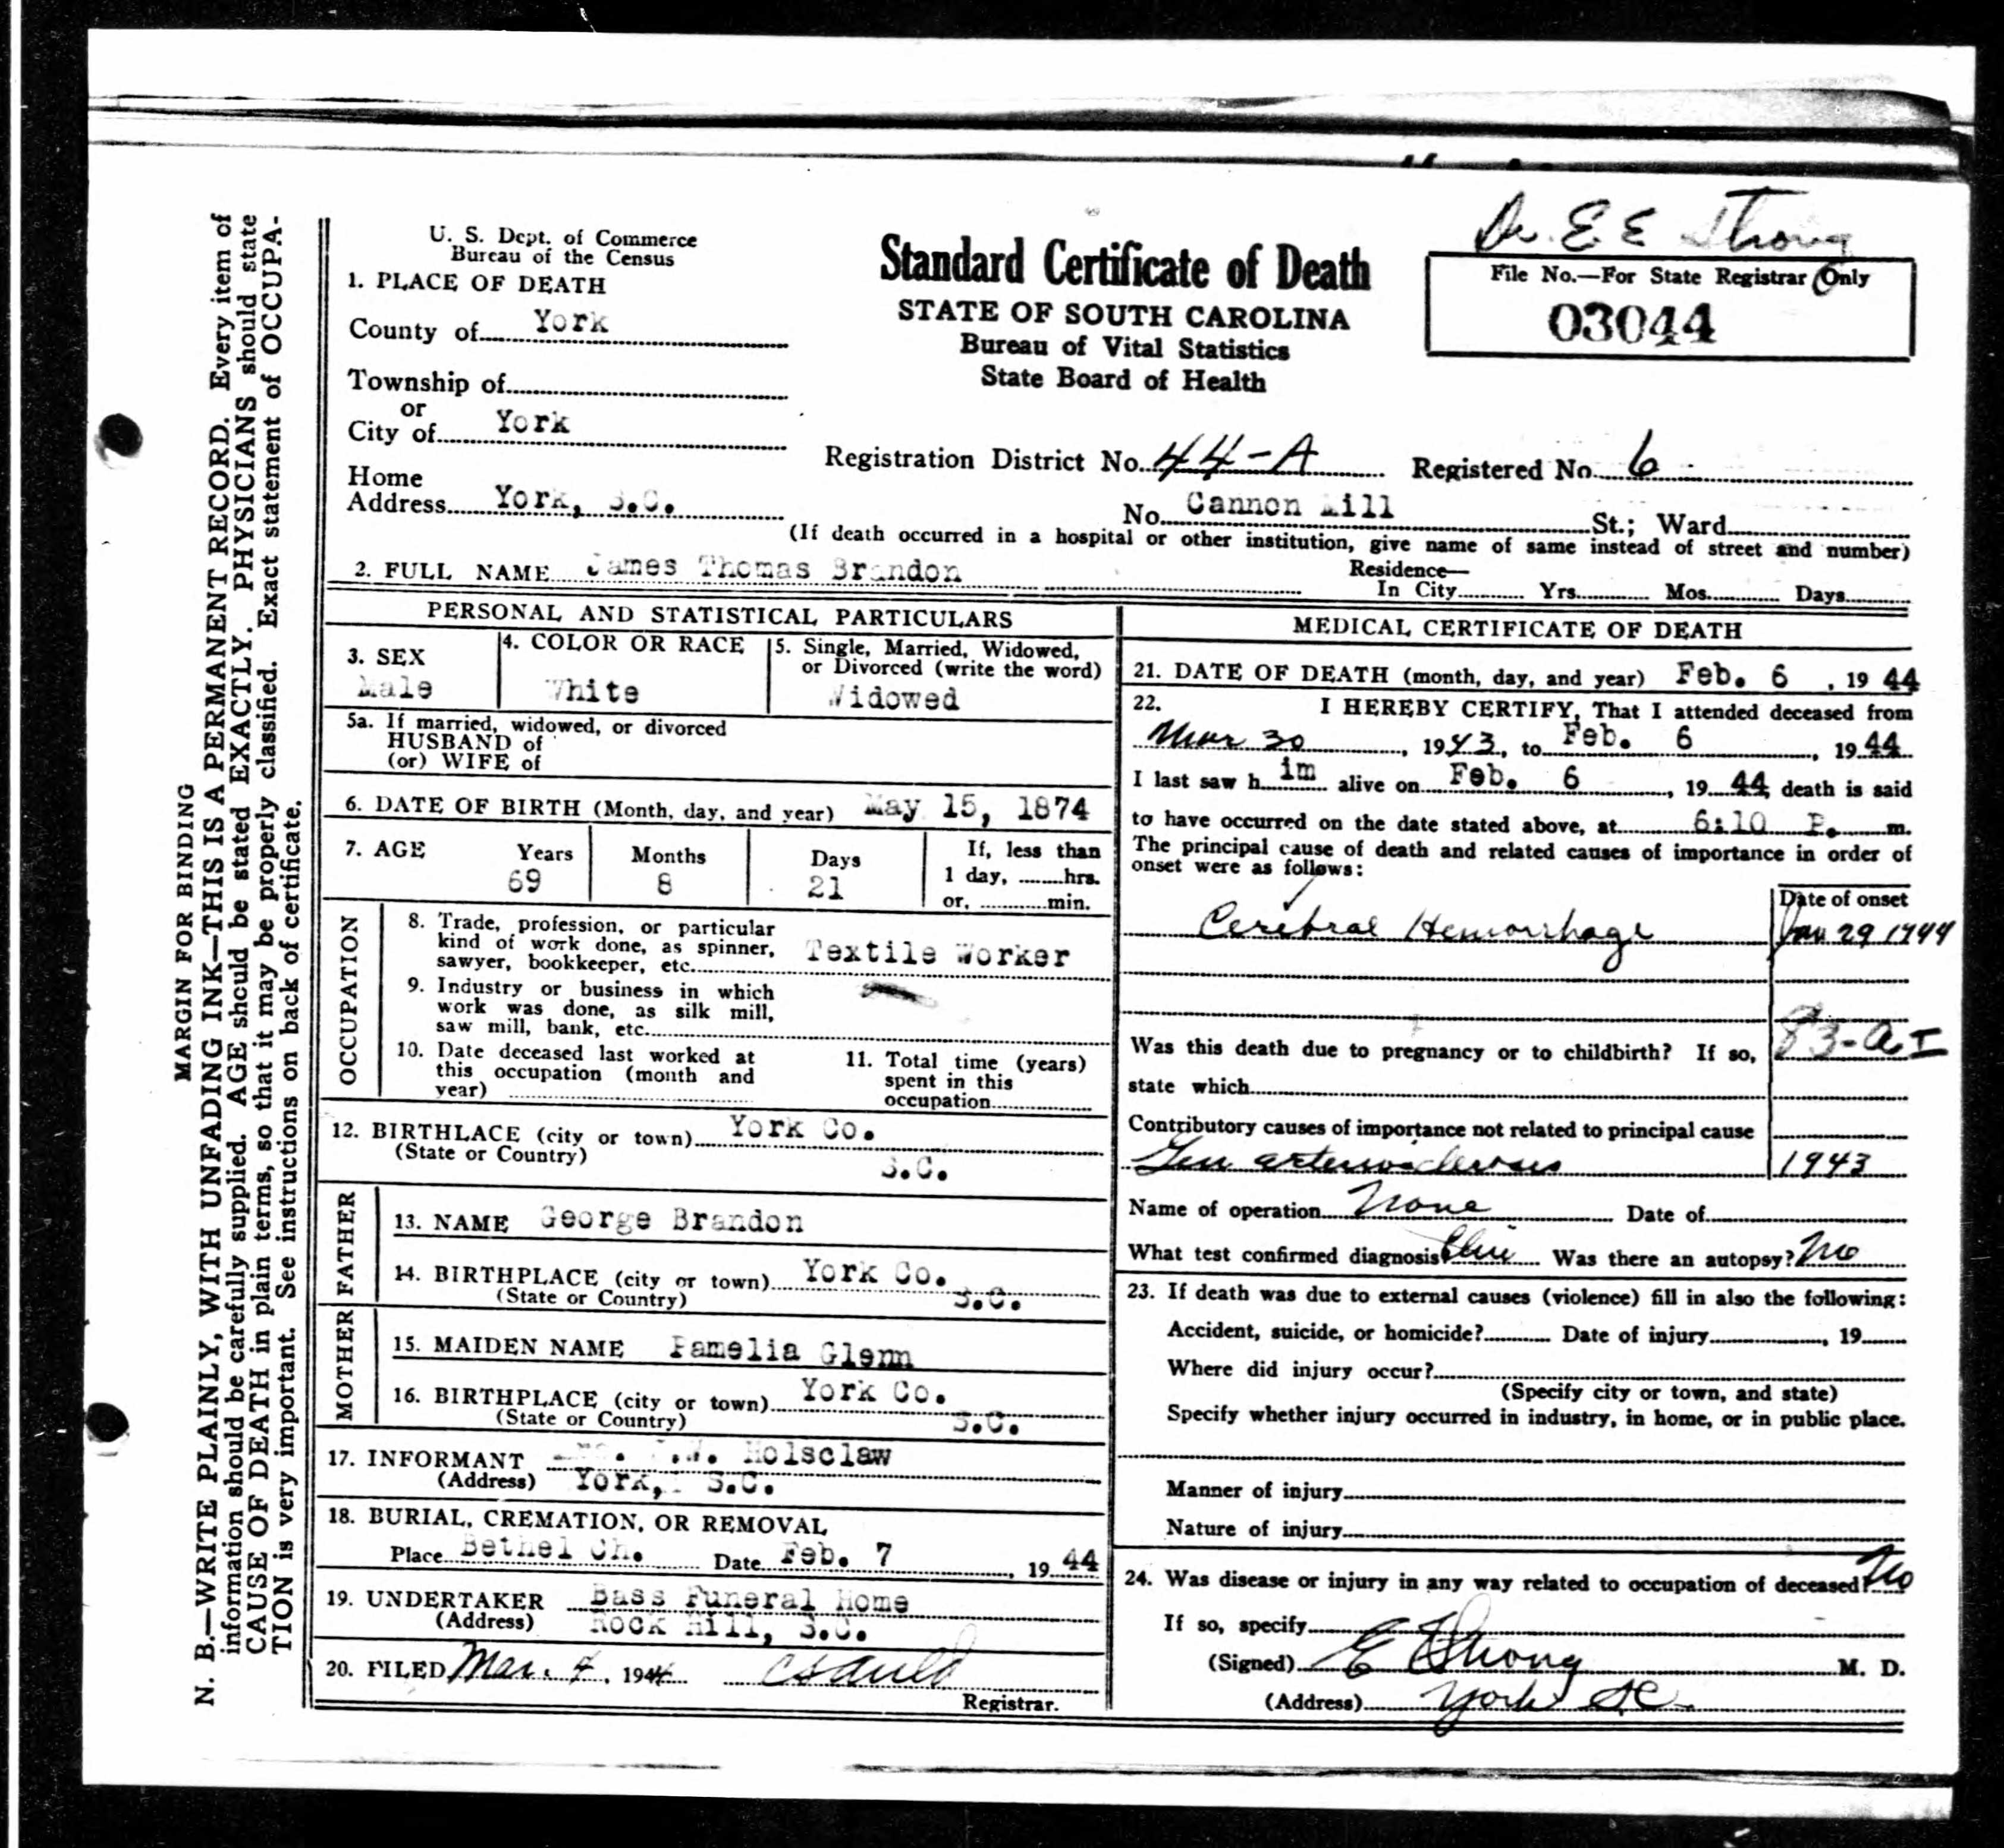 Dr. E E Strong
U. S. Dept. of Commerce
Bureau of the Census
Standard Certificate of Death
STATE OF SOUTH CAROLINA
Bureau of Vital Statistics
State Board of Health
File No.—For State Registrar Only
03044
1. PLACE OF DEATH
County of York
Township of
or
City of York
Home
Address York, S.C.
Registration District No. 44-A Registered No. 6
No. Cannon Mill St.; Ward
(If death occurred in a hospital or other institution, give name of same instead of street and number)
2. FULL NAME James Thomas Brandon
Residence—
In City Yrs. Mos. Days
PERSONAL AND STATISTICAL PARTICULARS
3. SEX
Male
4. COLOR OR RACE
White
5. Single, Married, Widowed,
or Divorced (write the word)
Widowed
5a. If married, widowed, or divorced
HUSBAND of
(or) WIFE of
6. DATE OF BIRTH (Month, day, and year) May 15, 1874
7. AGE
Years
69
Months
8
Days
21
If, less than
1 day, hrs.
or, min.
OCCUPATION
8. Trade, profession, or particular
kind of work done, as spinner,
sawyer, bookkeeper, etc. Textile Worker
9. Industry or business in which
work was done, as silk mill,
saw mill, bank, etc.
10. Date deceased last worked at
this occupation (month and
year)
11. Total time (years)
spent in this
occupation
12. BIRTHLACE (city or town) York Co.
(State or Country) S.C.
FATHER
13. NAME George Brandon
14. BIRTHPLACE (city or town) York Co.
(State or Country) S.C.
MOTHER
15. MAIDEN NAME Pamelia Glenn
16. BIRTHPLACE (city or town) York Co.
(State or Country) S.C.
17. INFORMANT .W. Holsclaw
(Address) York, S.C.
18. BURIAL, CREMATION, OR REMOVAL
Place Bethel Ch. Date Feb. 7, 1944
19. UNDERTAKER Bass Funeral Home
(Address) Rock Hill, S.C.
20. FILED Mar. 4, 1944
Registrar.
MEDICAL CERTIFICATE OF DEATH
21. DATE OF DEATH (month, day, and year) Feb. 6, 1944
22. I HEREBY CERTIFY, That I attended deceased from
Mar 30, 1943, to Feb. 6, 1944
I last saw him alive on Feb. 6, 1944, death is said
to have occurred on the date stated above, at 6:10 P. m.
The principal cause of death and related causes of importance in order of
onset were as follows:
Date of onset
Cerebral Hemorrhage Jan 29 1944
83-a I
Was this death due to pregnancy or to childbirth? If so,
state which
Contributory causes of importance not related to principal cause
Gen arteriosclerosis 1943
Name of operation None Date of
What test confirmed diagnosis? Clin Was there an autopsy? No
23. If death was due to external causes (violence) fill in also the following:
Accident, suicide, or homicide? Date of injury, 19
Where did injury occur?
(Specify city or town, and state)
Specify whether injury occurred in industry, in home, or in public place.
Manner of injury
Nature of injury
24. Was disease or injury in any way related to occupation of deceased? No
If so, specify
(Signed) E E Strong M. D.
(Address) York SC
MARGIN FOR BINDING
N. B.—WRITE PLAINLY, WITH UNFADING INK—THIS IS A PERMANENT RECORD. Every item of
information should be carefully supplied. AGE should be stated EXACTLY. PHYSICIANS should state
CAUSE OF DEATH in plain terms, so that it may be properly classified. Exact statement of OCCUPA-
TION is very important. See instructions on back of certificate.